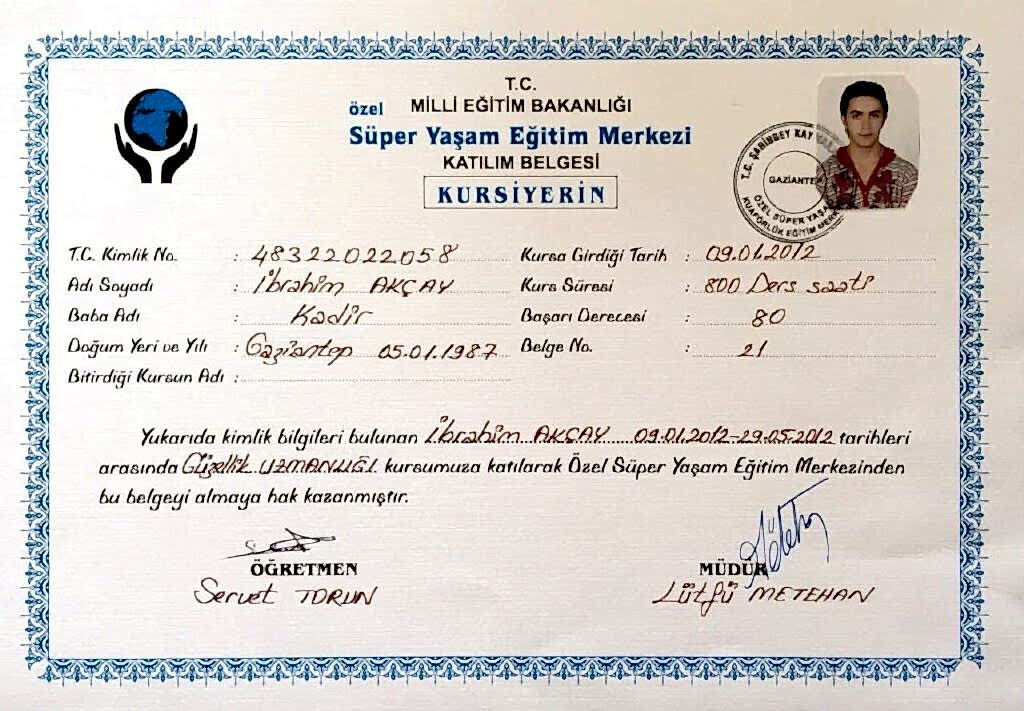 T.C.
özel MİLLİ EĞİTİM BAKANLIĞI
Süper Yaşam Eğitim Merkezi
KATILIM BELGESİ
KURSİYERİN
T.C. ŞAHİNBEY KAY
GAZİANTE
ÖZEL SÜPER YAŞA
KUAFÖRLÜK EĞİTİM MERK
T.C. Kimlik No. : 48322022058
Adı Soyadı : İbrahim AKÇAY
Baba Adı : Kadir
Doğum Yeri ve Yılı : Gaziantep 05.01.1987
Bitirdiği Kursun Adı :
Kursa Girdiği Tarih : 09.01.2012
Kurs Süresi : 800 Ders saati
Başarı Derecesi : 80
Belge No. : 21
Yukarıda kimlik bilgileri bulunan İbrahim AKÇAY 09.01.2012-29.05.2012 tarihleri
arasında Güzellik UZMANLIĞI kursumuza katılarak Özel Süper Yaşam Eğitim Merkezinden
bu belgeyi almaya hak kazanmıştır.
ÖĞRETMEN
Servet TORUN
MÜDÜR
Lütfü METEHAN